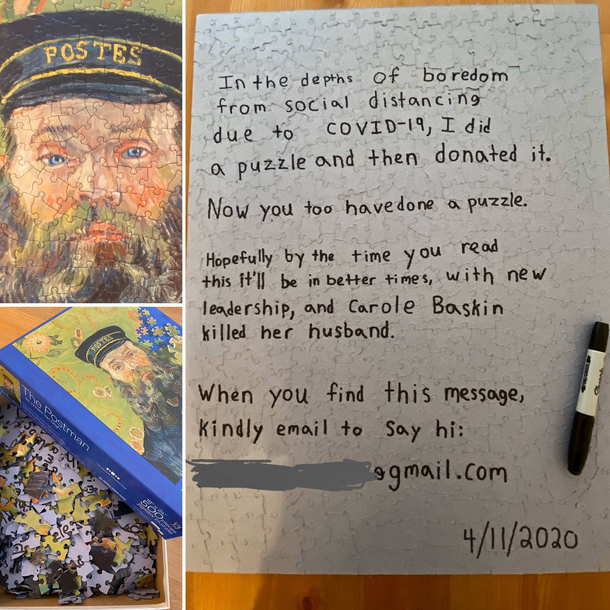 POSTES
In the depths of boredom
from social distancing
due to COVID-19, I did
a puzzle and then donated it.
Now you too have done a puzzle.
Hopefully by the time you read
this it'll be in better times, with new
leadership, and Carole Baskin
killed her husband.
When you find this message,
kindly email to say hi:
@gmail.com
4/11/2020
POSTES
The Postman
500
Sharpie